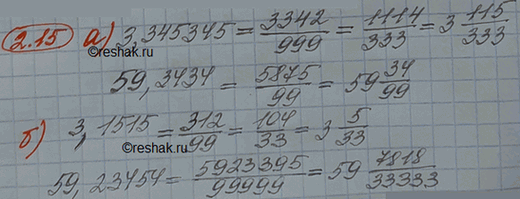 2.15 а) 3,345345 = 3342/999 = 1114/333 = 3 115/333
59,3434 = 5875/99 = 59 34/99
б) 3,1515 = 312/99 = 104/33 = 3 5/33
©reshak.ru ©reshak.ru
59,23454 = 5923395/99999 = 59 7818/33333